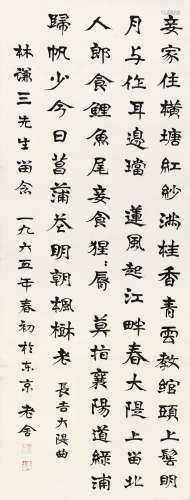 妾家住橫塘紅紗滿桂香青雲教綰頭上髻明
月与作耳邊璫 蓮風起江畔春大隄上畄北
人郎食鯉魚尾妾食猩々脣 莫指襄陽道綠浦
歸帆少今日菖蒲花明朝楓樹老 長吉大隄曲
林謙三先生畄念 一九六五年春初於东京 老舍